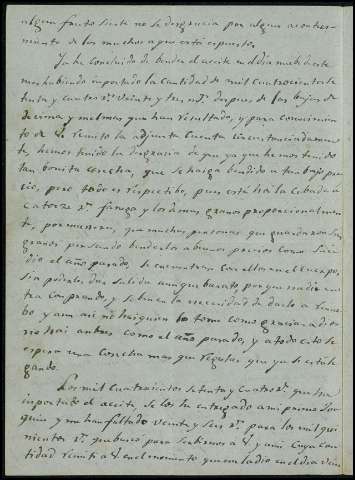 algun fruto si este no se desgracia por algun aconteci-
miento de los muchos a que está espuesto.
Ya he concluido de bender el aceite en el dia nuebe de este
mes habiendo importado la cantidad de mil cuatrocientos se
tenta y cuatro rs. veinte y tres ms. despues de las bajas de
decima y melmas que han resultado, y para conocimien
to de V. remito la adjunta cuenta circunstanciadamen
te, hemos tenido la desgracia de que ya que hemos tenido
tan bonita cosecha, que se haiga bendido a tan bajo pre
cio, pero todo es respectibo, pues está hoi la cebada a
catorce rs. fanega y los demas granos proporcionalmen
te, por manera, que muchas personas que guardaron sus
granos pensando benderlos a buenos precios como suce
dió el año pasado, se encuentran con ellos en el cuerpo,
sin poderles dar salida aunque barato, porque nadie en
tra comprando, y se been en la necesidad de darlo a renue
bo y aun asi no hai quien lo tome como gracias a dios
no hai ambre como el año pasado, y a todo esto se
espera una cosecha mas que regular que ya se está le
gando.
Los mil cuatrocientos setenta y cuatro rs. que ha
importado el aceite, se los he entregado a mi primo Joa
quin y me han faltado veinte y seis rs. para los mil qui
nientos rs. que buscó para serbirnos a V. y a mi cuya can
tidad remití a V. en el momento que me la dio en el dia vein